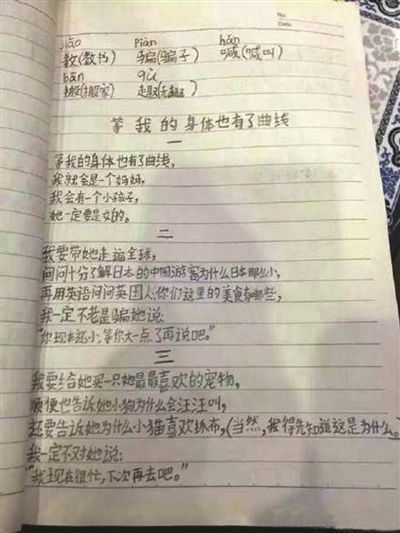 No.
Date
jiāo piàn hǎn
教(教书) 骗(骗子) 喊(喊叫)
bān qù
搬(搬家) 趣(无趣)
等我的身体也有了曲线
一
等我的身体也有了曲线,
我就会是一个妈妈,
我会有一个小孩子,
她一定要是女的。
二
我要带她走遍全球,
问问十分了解日本的中国游客为什么日本那么小,
再用英语问问英国人:你们这里的美食有哪些,
我一定不老是骗她说:
"你现在还小,等你大一点了再说吧。"
三
我要给她买一只她最最喜欢的宠物,
顺便也告诉她小狗为什么会汪汪叫,
还要告诉她为什么小猫喜欢抓布,(当然,我得先知道这是为什么。)
我一定不对她说:
"我现在很忙,下次再去吧。"